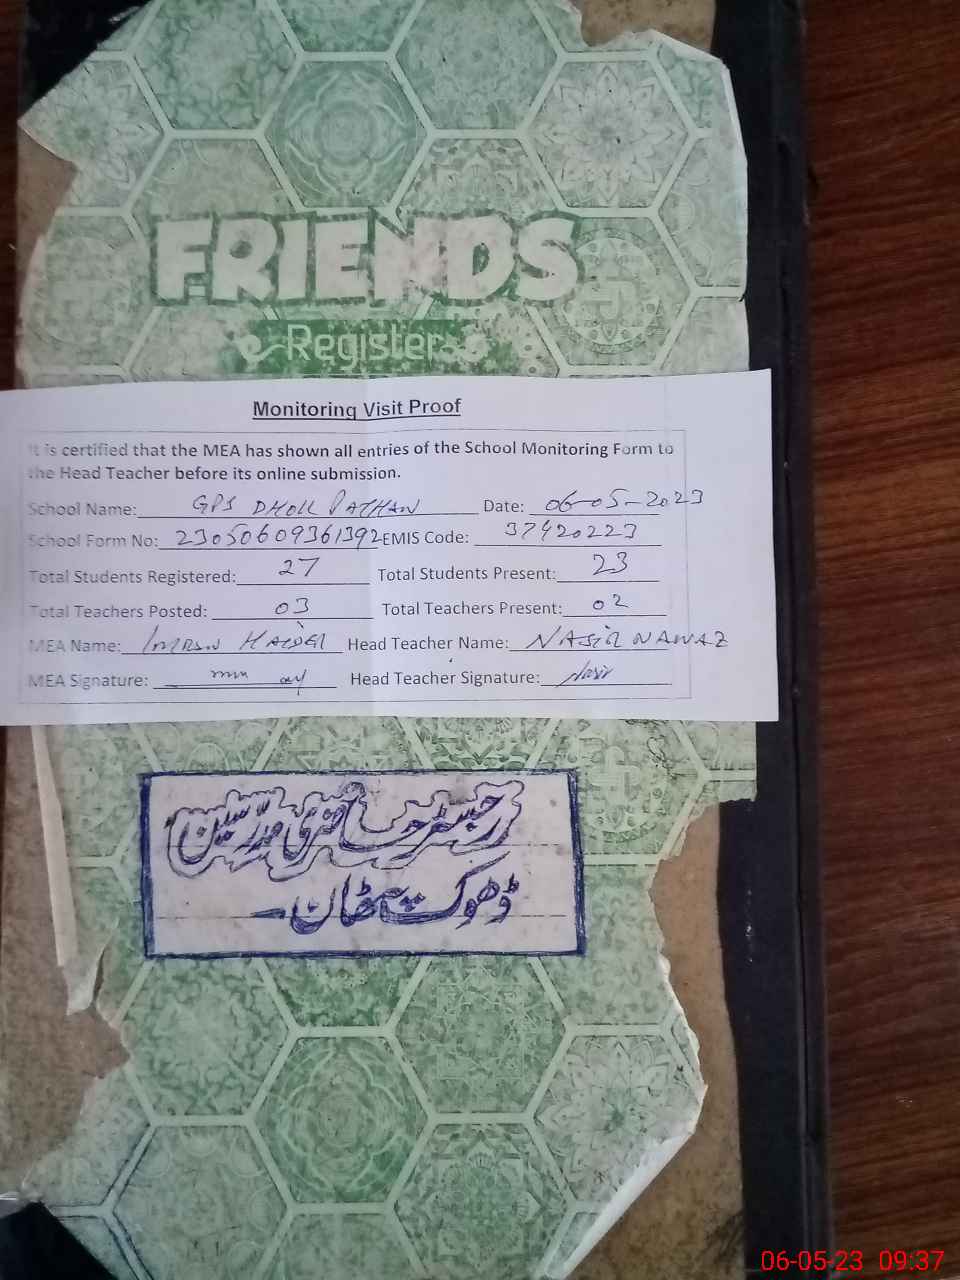 FRIENDS
Register
Monitoring Visit Proof
It is certified that the MEA has shown all entries of the School Monitoring Form to
the Head Teacher before its online submission.
School Name: GPS DHOK PATHAN Date: 06-05-2023
School Form No: 23050609361392 EMIS Code: 37420223
Total Students Registered: 27 Total Students Present: 23
Total Teachers Posted: 03 Total Teachers Present: 02
MEA Name: IMRAN HAIDER Head Teacher Name: NASIR NAWAZ
MEA Signature: Head Teacher Signature: Nasir
رجسٹر حاضری مدرسین
ڈھوک پٹھان
06-05-23 09:37